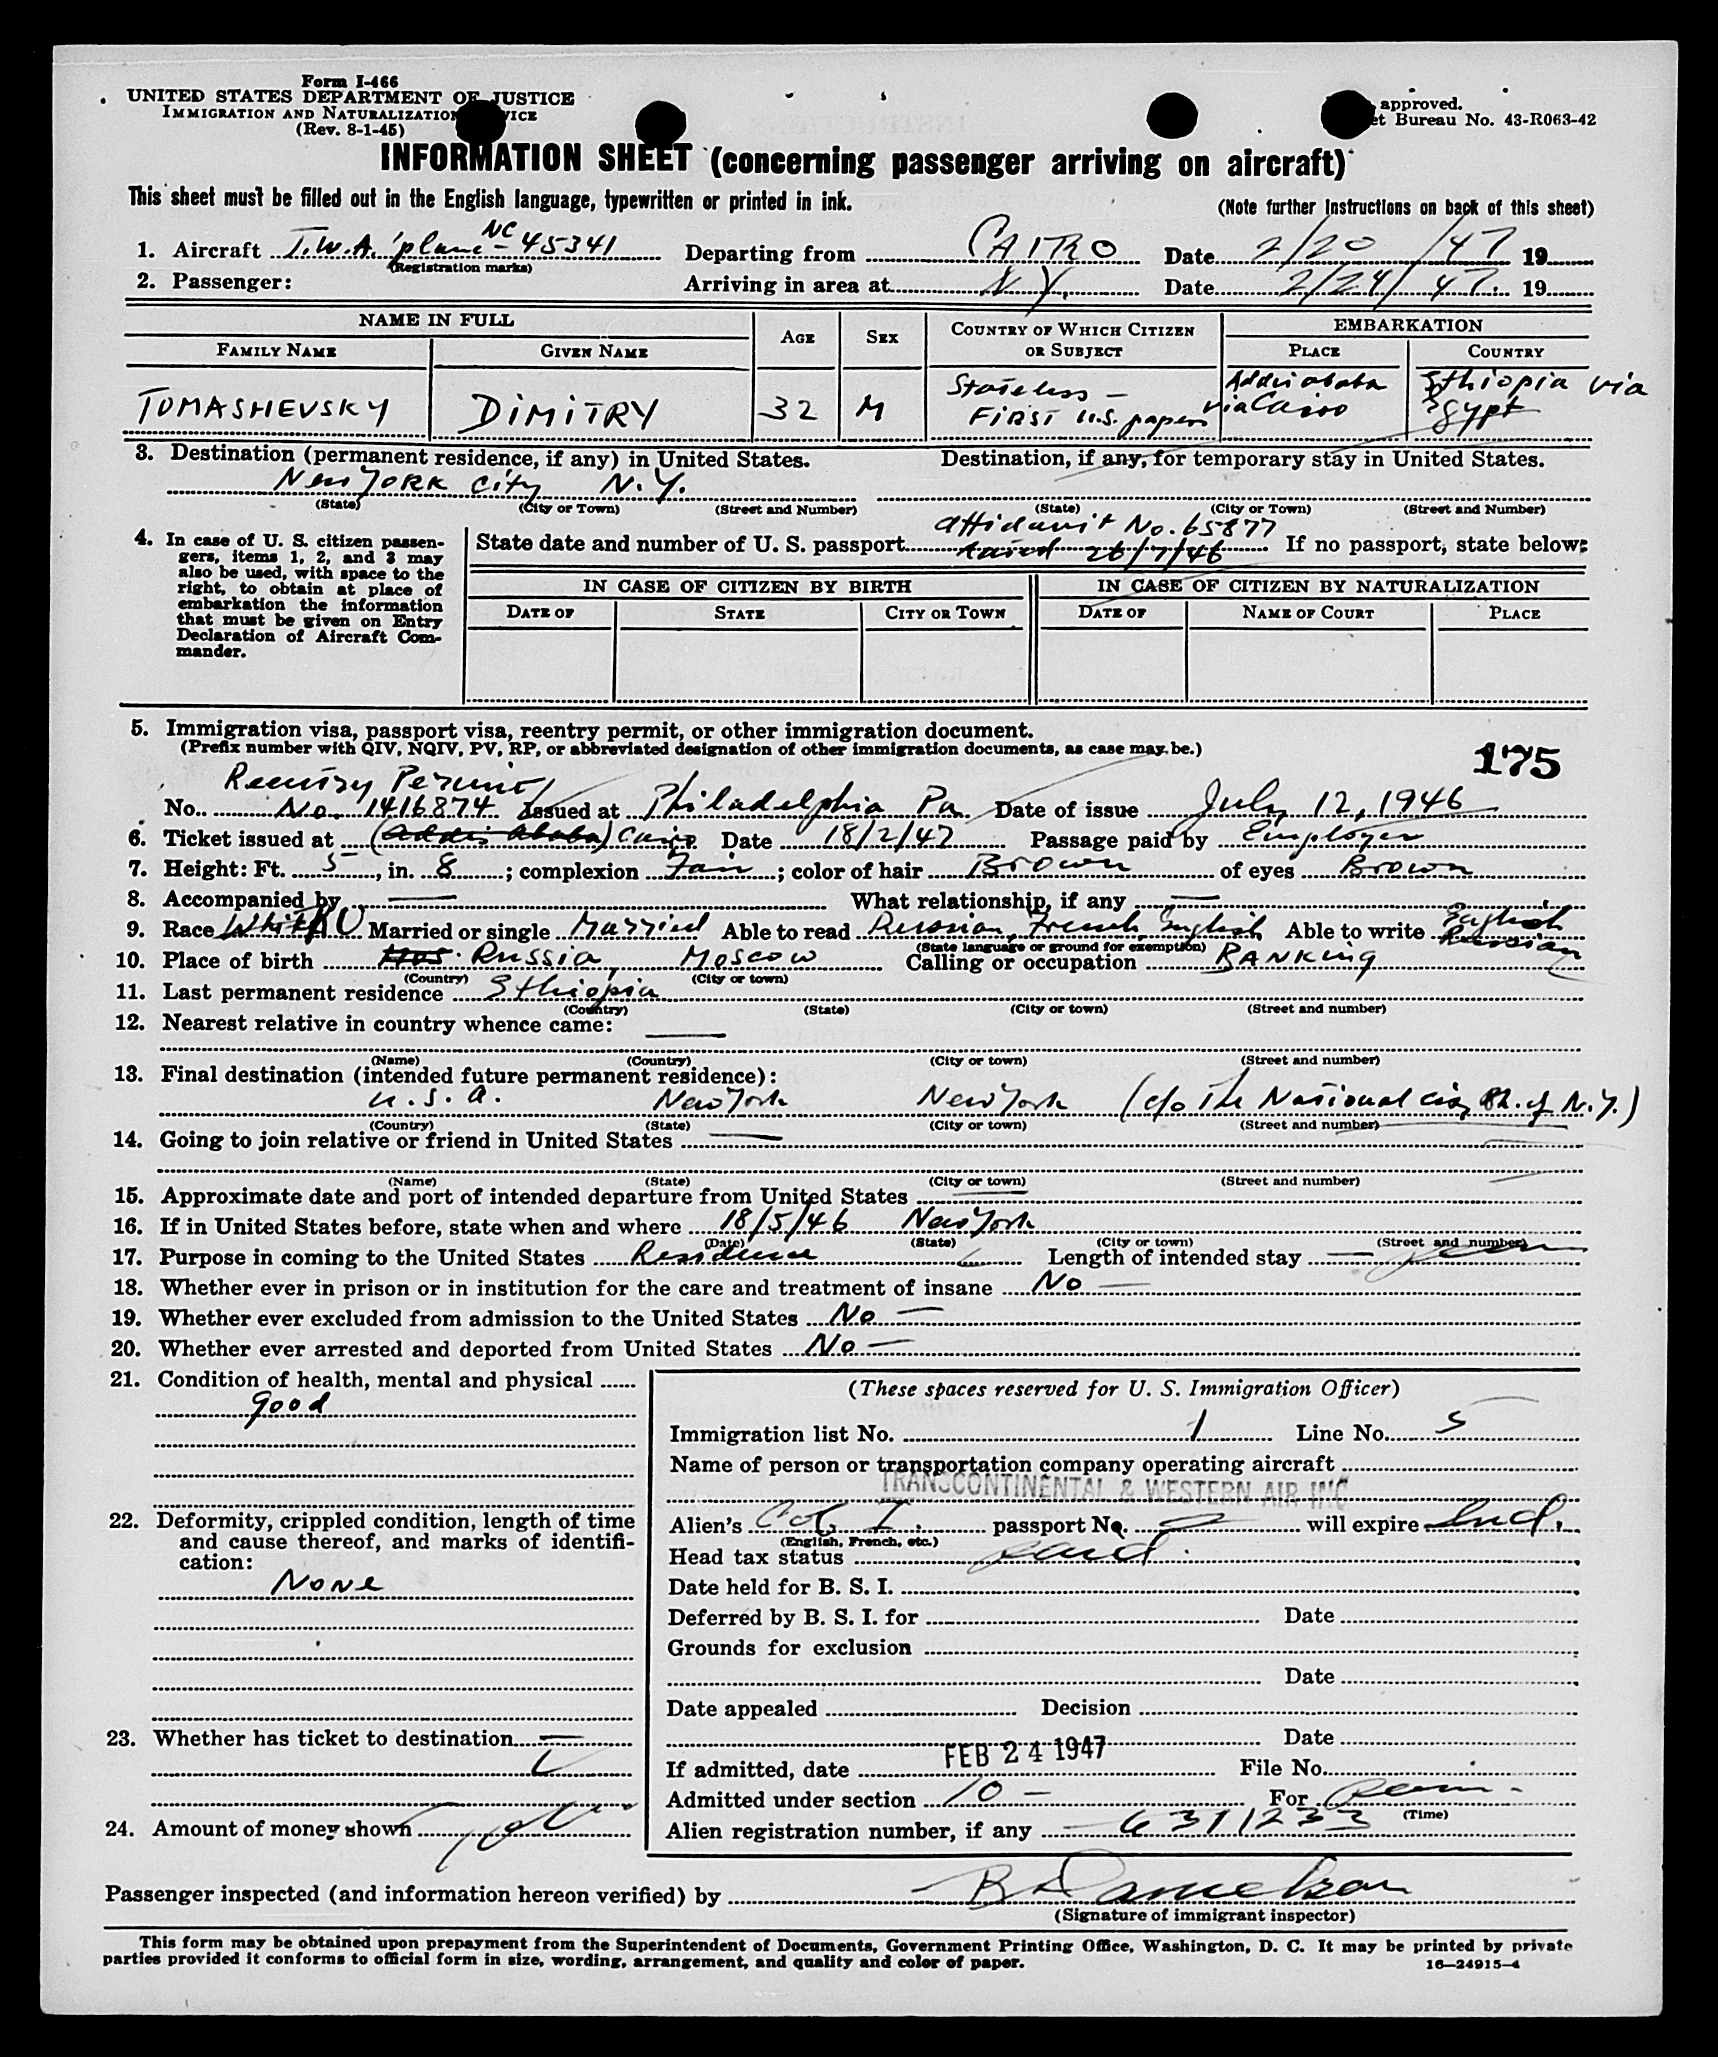 Form I-466
UNITED STATES DEPARTMENT OF JUSTICE
IMMIGRATION AND NATURALIZATION SERVICE
(Rev. 8-1-45)
approved.
Bureau No. 43-R063-42
INFORMATION SHEET (concerning passenger arriving on aircraft)
This sheet must be filled out in the English language, typewritten or printed in ink.
(Note further instructions on back of this sheet)
1. Aircraft T.W.A. plane NC-45341 Departing from CAIRO Date 2/20/47 19
(Registration marks)
2. Passenger: Arriving in area at N.Y. Date 2/24/47 19
NAME IN FULL AGE SEX COUNTRY OF WHICH CITIZEN OR SUBJECT EMBARKATION
FAMILY NAME GIVEN NAME PLACE COUNTRY
TOMASHEVSKY DIMITRY 32 M Stateless - FIRST U.S. papers Addis ababa via Cairo Ethiopia via Egypt
3. Destination (permanent residence, if any) in United States. Destination, if any, for temporary stay in United States.
New YORK city N.Y.
(State) (City or Town) (Street and Number) (State) (City or Town) (Street and Number)
4. In case of U. S. citizen passengers, items 1, 2, and 3 may also be used, with space to the right, to obtain at place of embarkation the information that must be given on Entry Declaration of Aircraft Commander.
affidavit No. 65877
State date and number of U. S. passport 26/7/46 If no passport, state below:
IN CASE OF CITIZEN BY BIRTH IN CASE OF CITIZEN BY NATURALIZATION
DATE OF STATE CITY OR TOWN DATE OF NAME OF COURT PLACE
5. Immigration visa, passport visa, reentry permit, or other immigration document.
(Prefix number with QIV, NQIV, PV, RP, or abbreviated designation of other immigration documents, as case may be.)
175
Reentry Permit
No. No. 1416874 Issued at Philadelphia Pa Date of issue July 12, 1946
6. Ticket issued at (Addis Ababa) Cairo Date 18/2/47 Passage paid by Employer
7. Height: Ft. 5, in. 8; complexion Fair; color of hair Brown of eyes Brown
8. Accompanied by — What relationship, if any —
9. Race White Married or single Married Able to read Russian, French, English Able to write English Russian
(State language or ground for exemption)
10. Place of birth Mos. Russia, Moscow Calling or occupation BANKing
(Country) (City or town)
11. Last permanent residence Ethiopia
(Country) (State) (City or town) (Street and number)
12. Nearest relative in country whence came: —
(Name) (Country) (City or town) (Street and number)
13. Final destination (intended future permanent residence):
U.S.A. New York New York (c/o The National City Bk. of N.Y.)
(Country) (State) (City or town) (Street and number)
14. Going to join relative or friend in United States —
(Name) (State) (City or town) (Street and number)
15. Approximate date and port of intended departure from United States —
16. If in United States before, state when and where 18/5/46 New York
(Date) (State) (City or town) (Street and number)
17. Purpose in coming to the United States Residence Length of intended stay —
18. Whether ever in prison or in institution for the care and treatment of insane No —
19. Whether ever excluded from admission to the United States No —
20. Whether ever arrested and deported from United States No —
21. Condition of health, mental and physical
good
22. Deformity, crippled condition, length of time and cause thereof, and marks of identification:
None
23. Whether has ticket to destination
24. Amount of money shown
(These spaces reserved for U. S. Immigration Officer)
Immigration list No. 1 Line No. 5
Name of person or transportation company operating aircraft
TRANSCONTINENTAL & WESTERN AIR INC
Alien's C of I. passport No. — will expire Ind.
(English, French, etc.)
Head tax status paid.
Date held for B. S. I.
Deferred by B. S. I. for Date
Grounds for exclusion
Date
Date appealed Decision
Date
If admitted, date FEB 24 1947 File No.
Admitted under section 10 — For
(Time)
Alien registration number, if any 6311233
Passenger inspected (and information hereon verified) by
(Signature of immigrant inspector)
This form may be obtained upon prepayment from the Superintendent of Documents, Government Printing Office, Washington, D. C. It may be printed by private
parties provided it conforms to official form in size, wording, arrangement, and quality and color of paper.
16—24915-4